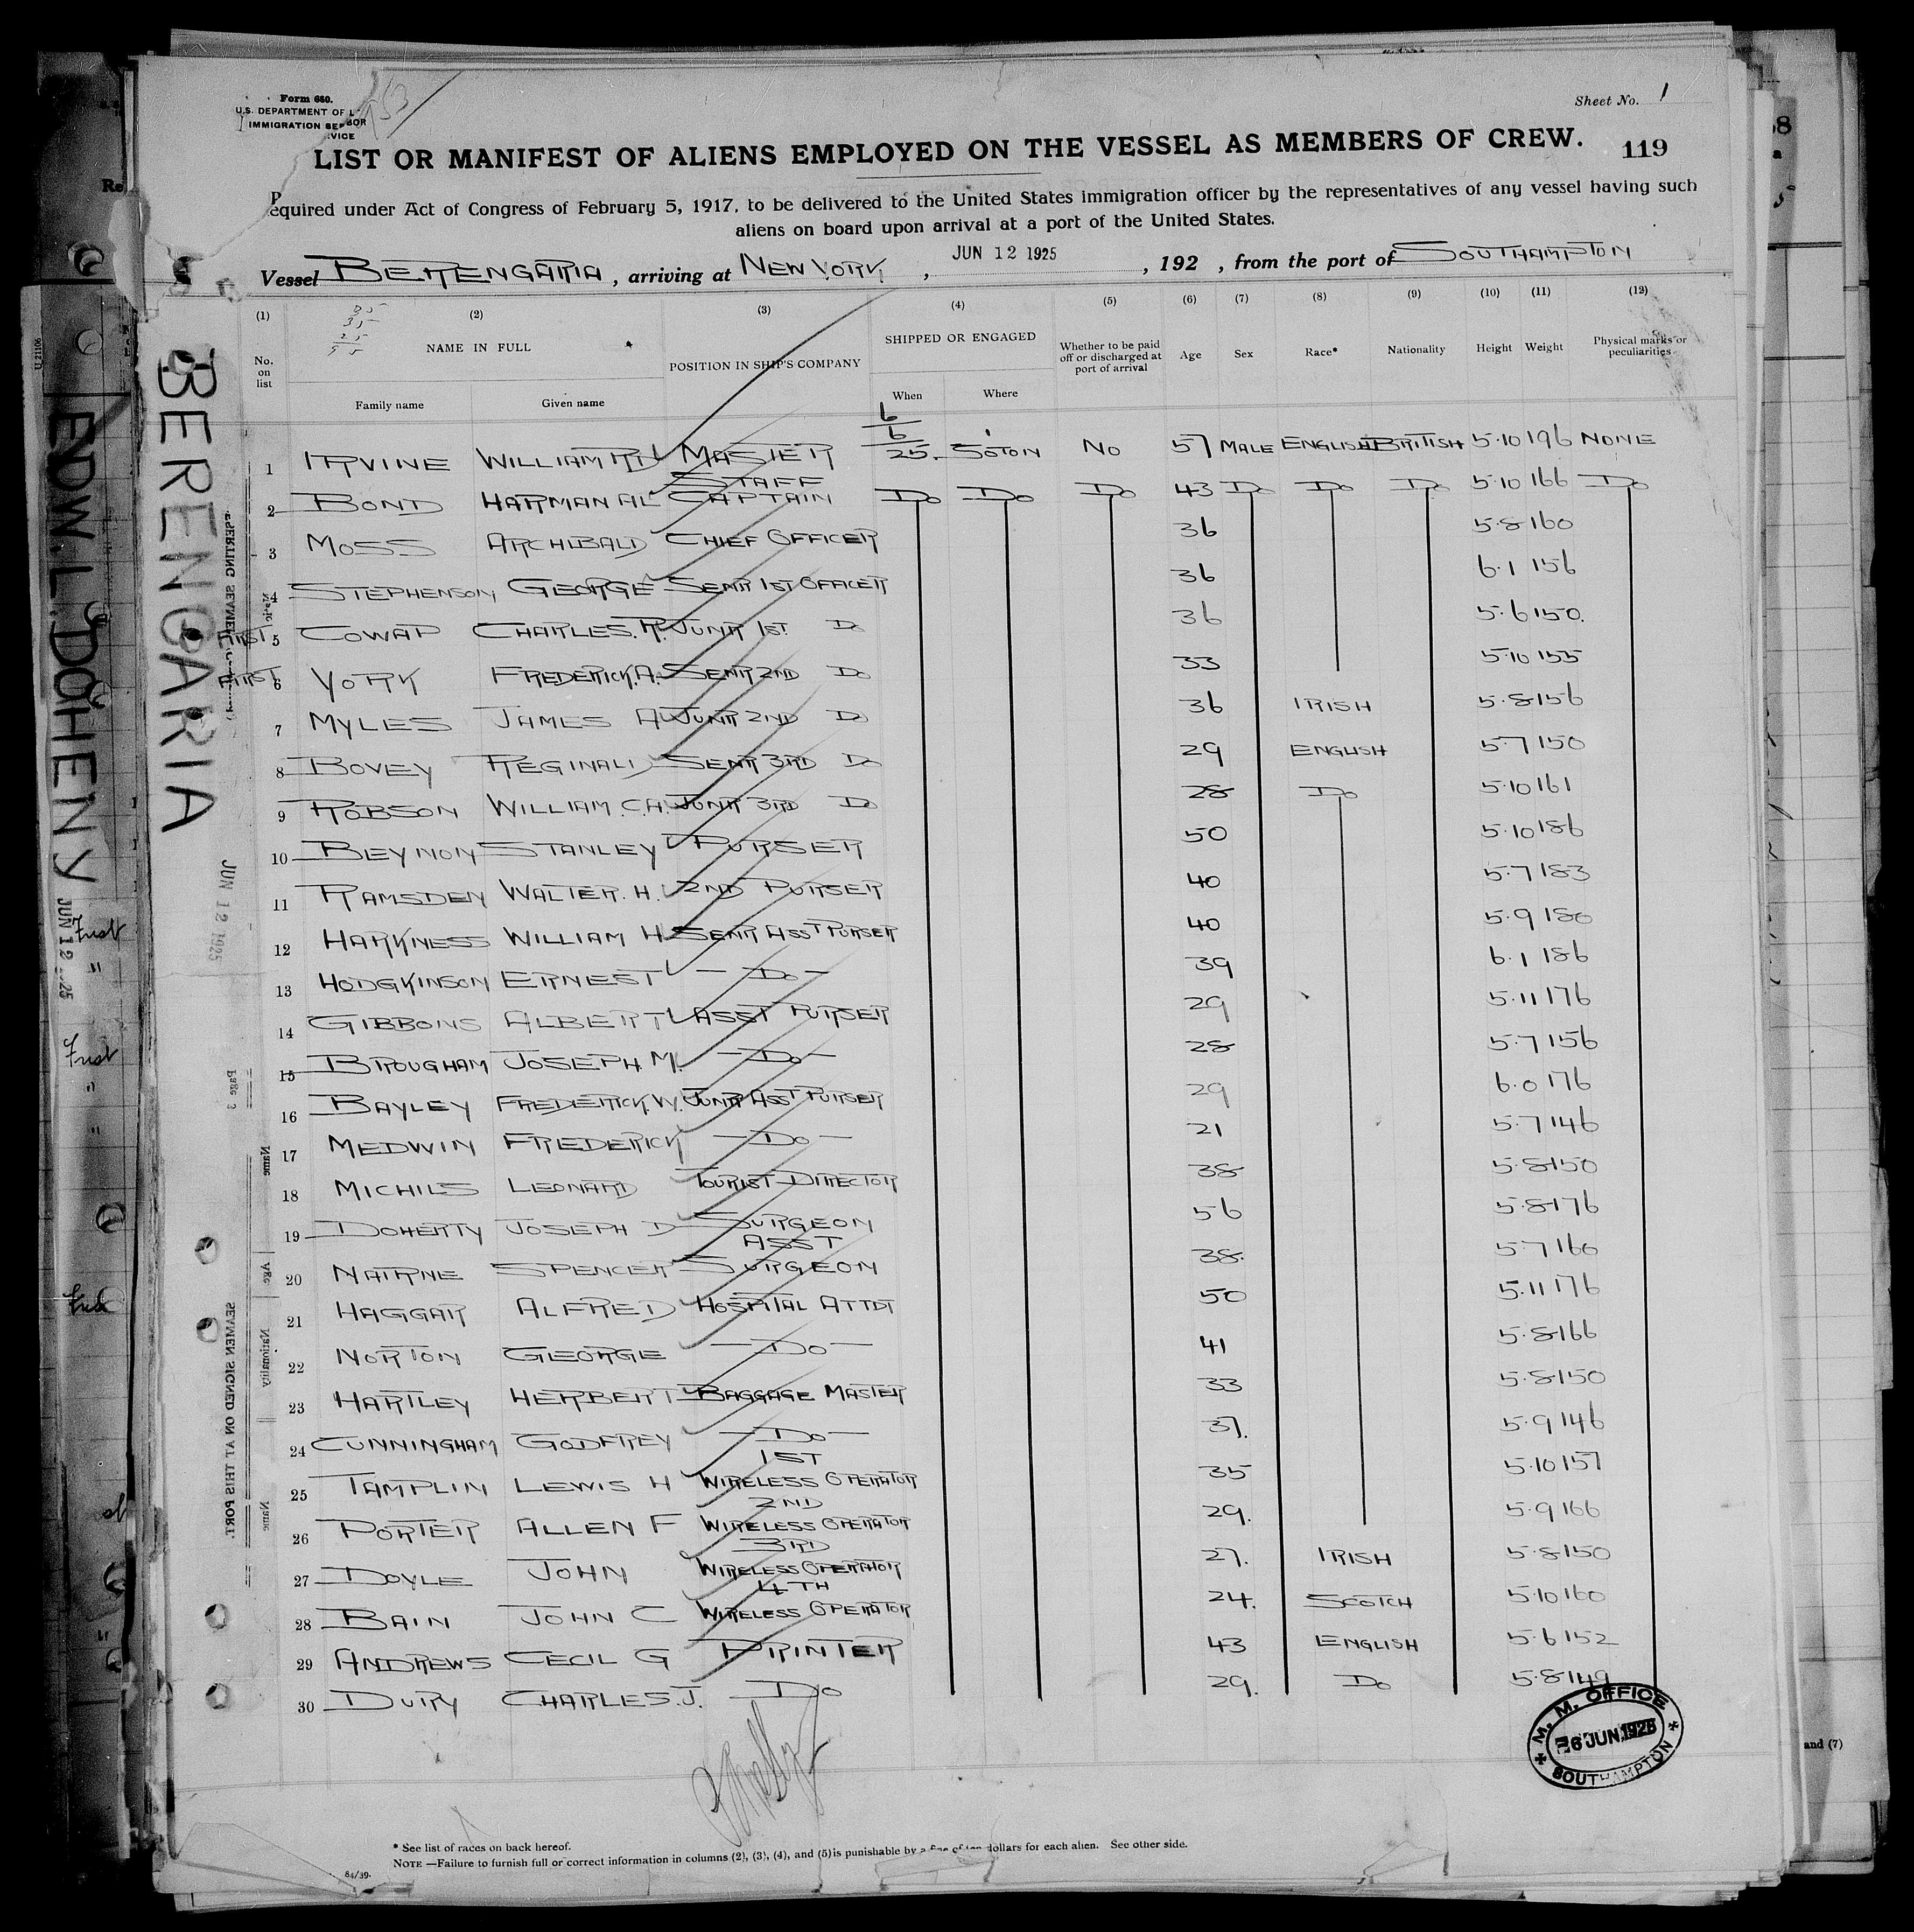 Form 680.
U.S. DEPARTMENT OF LABOR
IMMIGRATION SERVICE
Sheet No. 1
LIST OR MANIFEST OF ALIENS EMPLOYED ON THE VESSEL AS MEMBERS OF CREW. 119
Required under Act of Congress of February 5, 1917, to be delivered to the United States immigration officer by the representatives of any vessel having such
aliens on board upon arrival at a port of the United States.
Vessel BERENGARIA, arriving at NEW YORK, JUN 12 1925, 192 , from the port of SOUTHAMPTON
(1) (2) (3) (4) (5) (6) (7) (8) (9) (10) (11) (12)
No. on list NAME IN FULL POSITION IN SHIP'S COMPANY SHIPPED OR ENGAGED Whether to be paid off or discharged at port of arrival Age Sex Race* Nationality Height Weight Physical marks or peculiarities
Family name Given name When Where
1 IRVINE WILLIAM RD MASTER 6/6/25. SOTON NO 57 MALE ENGLISH BRITISH 5·10 196 NONE
2 BOND HARMAN AL STAFF CAPTAIN DO DO DO 43 DO DO DO 5·10 166 DO
3 MOSS ARCHIBALD CHIEF OFFICER 36 5·8 160
4 STEPHENSON GEORGE SENR 1ST OFFICER 36 6·1 156
FIRST 5 COWAP CHARLES.R. JUNR 1ST. DO 36 5·6 150.
FIRST 6 YORK FREDERICK.A. SENR 2ND DO 33 5·10 155
7 MYLES JAMES AW JUNR 2ND DO 36 IRISH 5·8 156
8 BOVEY REGINALD SENR 3RD DO 29 ENGLISH 5·7 150
9 ROBSON WILLIAM.C.H. JUNR 3RD DO 28 DO 5·10 161
10 BEYNON STANLEY PURSER 50 5·10 186
11 RAMSDEN WALTER.H. 2ND PURSER 40 5·7 183
12 HARKNESS WILLIAM H SENR ASST PURSER 40 5·9 180
13 HODGKINSON ERNEST — DO — 39 6·1 186
14 GIBBONS ALBERT ASST PURSER 29 5·11 176
15 BROUGHAM JOSEPH.M. — DO — 28 5·7 156
16 BAYLEY FREDERICK.W. JUNR ASST PURSER 29 6·0 176
17 MEDWIN FREDERICK — DO — 21 5·7 146
18 MICHILS LEONARD TOURIST DIRECTOR 38 5·8 150
19 DOHERTY JOSEPH D SURGEON 56 5·8 176
20 NAIRNE SPENCER ASST SURGEON 38. 5·7 160
21 HAGGAR ALFRED HOSPITAL ATTDT 50 5·11 176
22 NORTON GEORGE — DO — 41 5·8 166
23 HARTLEY HERBERT BAGGAGE MASTER 33 5·8 150
24 CUNNINGHAM GODFREY — DO — 37. 5·9 146
25 TAMPLIN LEWIS H 1ST WIRELESS OPERATOR 35 5·10 157
26 PORTER ALLEN F 2ND WIRELESS OPERATOR 29. 5·9 166
27 DOYLE JOHN 3RD WIRELESS OPERATOR 27. IRISH 5·8 150
28 BAIN JOHN C 4TH WIRELESS OPERATOR 24. SCOTCH 5·10 160
29 ANDREWS CECIL G PRINTER 43 ENGLISH 5·6 152
30 DURY CHARLES.J. DO 29. DO 5·8 149
M. M. OFFICE
6 JUN 1925
SOUTHAMPTON
* See list of races on back hereof.
NOTE —Failure to furnish full or correct information in columns (2), (3), (4), and (5) is punishable by a fine of ten dollars for each alien. See other side.
84/39.
BERENGARIA
JUN 12 1925
Page 3
SEAMEN SIGNED ON AT THIS PORT.
Name
Age
Nationality
Name
EDW. L. DOHENY
U 21106
and (7)